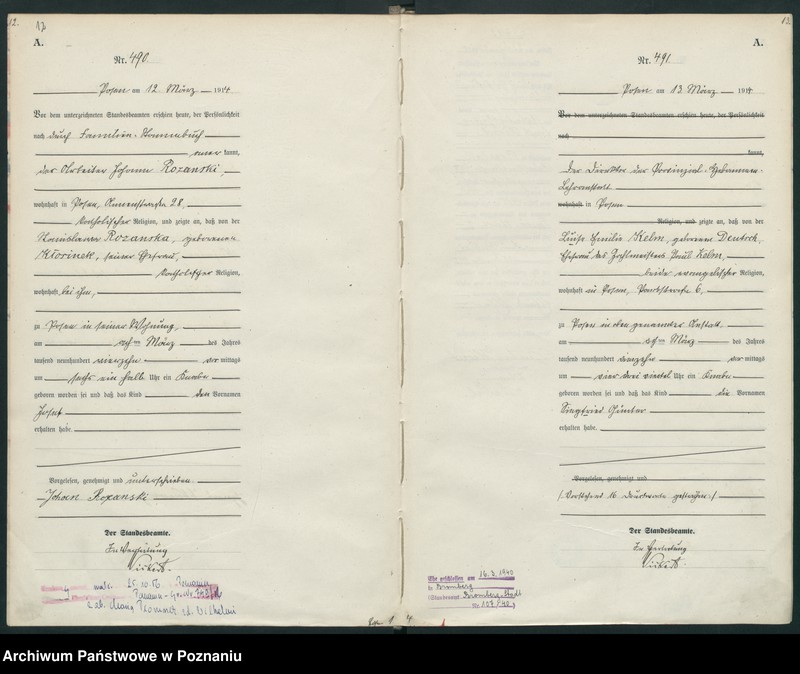 12.
13
A.
Nr. 490.
Posen am 12 März 1914
Vor dem unterzeichneten Standesbeamten erschien heute, der Persönlichkeit
nach durch Familien-Stammbuch
aner kannt,
der Arbeiter Johann Rozanski,
wohnhaft in Posen, 28,
katholischer Religion, und zeigte an, daß von der
Stanislawa Rozanska, geborenen
seiner Ehefrau,
katholischer Religion,
wohnhaft bei ihm,
zu Posen in seiner Wohnung,
am März des Jahres
tausend neunhundert vierzehn vor mittags
um sechs ein halb Uhr ein Knabe
geboren worden sei und daß das Kind den Vornamen
Josef
erhalten habe.
Vorgelesen, genehmigt und unterschrieben
Johann Rozanski
Der Standesbeamte.
In Vertretung
25.10.
12
A.
Nr. 491.
Posen am 13 März 1914
Vor dem unterzeichneten Standesbeamten erschien heute, der Persönlichkeit
nach
kannt,
Der Direktor der Provinzial-Hebammen-
Lehranstalt
wohnhaft in Posen
Religion, und zeigte an, daß von der
Luise Emilie Kelm, geborenen Deutsch,
Ehefrau des Zahlmeisters Paul Kelm,
beide evangelischer Religion,
wohnhaft in Posen, Parkstraße 6,
zu Posen in der genannten Anstalt
am März des Jahres
tausend neunhundert vierzehn vor mittags
um vier drei viertel Uhr ein Knabe
geboren worden sei und daß das Kind die Vornamen
Siegfried Günter
erhalten habe.
Vorgelesen, genehmigt und
/ Vorstehend 16 Druckworte gestrichen. /
Der Standesbeamte.
In Vertretung
Ehe geschlossen am 16.3.1940
in Bromberg
(Standesamt Bromberg-Stadt
Nr. 107/40)
Archiwum Państwowe w Poznaniu